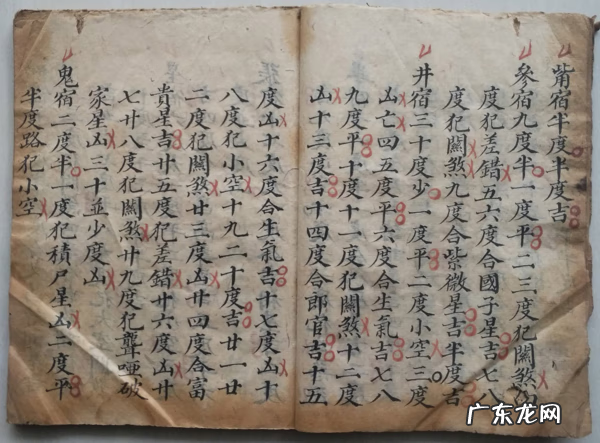 觜宿半度半度吉
參宿九度半一度平二三度犯關煞凶
度犯差錯五六度合國子星吉七八
度犯關煞九度合紫微星吉半度吉
井宿三十度少一度平二度小空三度
凶亡四五度平六度合生氣吉七八
九度平十度十一度犯關煞十二度
凶十三度吉十四度合郎官吉十五
度凶十六度合生氣吉十七度凶十
八度犯小空十九二十度吉廿一廿
二度犯關煞廿三度凶廿四度合富
貴星吉廿五度犯差錯廿六度凶廿
七廿八度犯關煞廿九度犯聾啞破
家星凶三十並少度凶
鬼宿二度半一度犯積尸星凶二度平
半度路犯小空
广东龙网